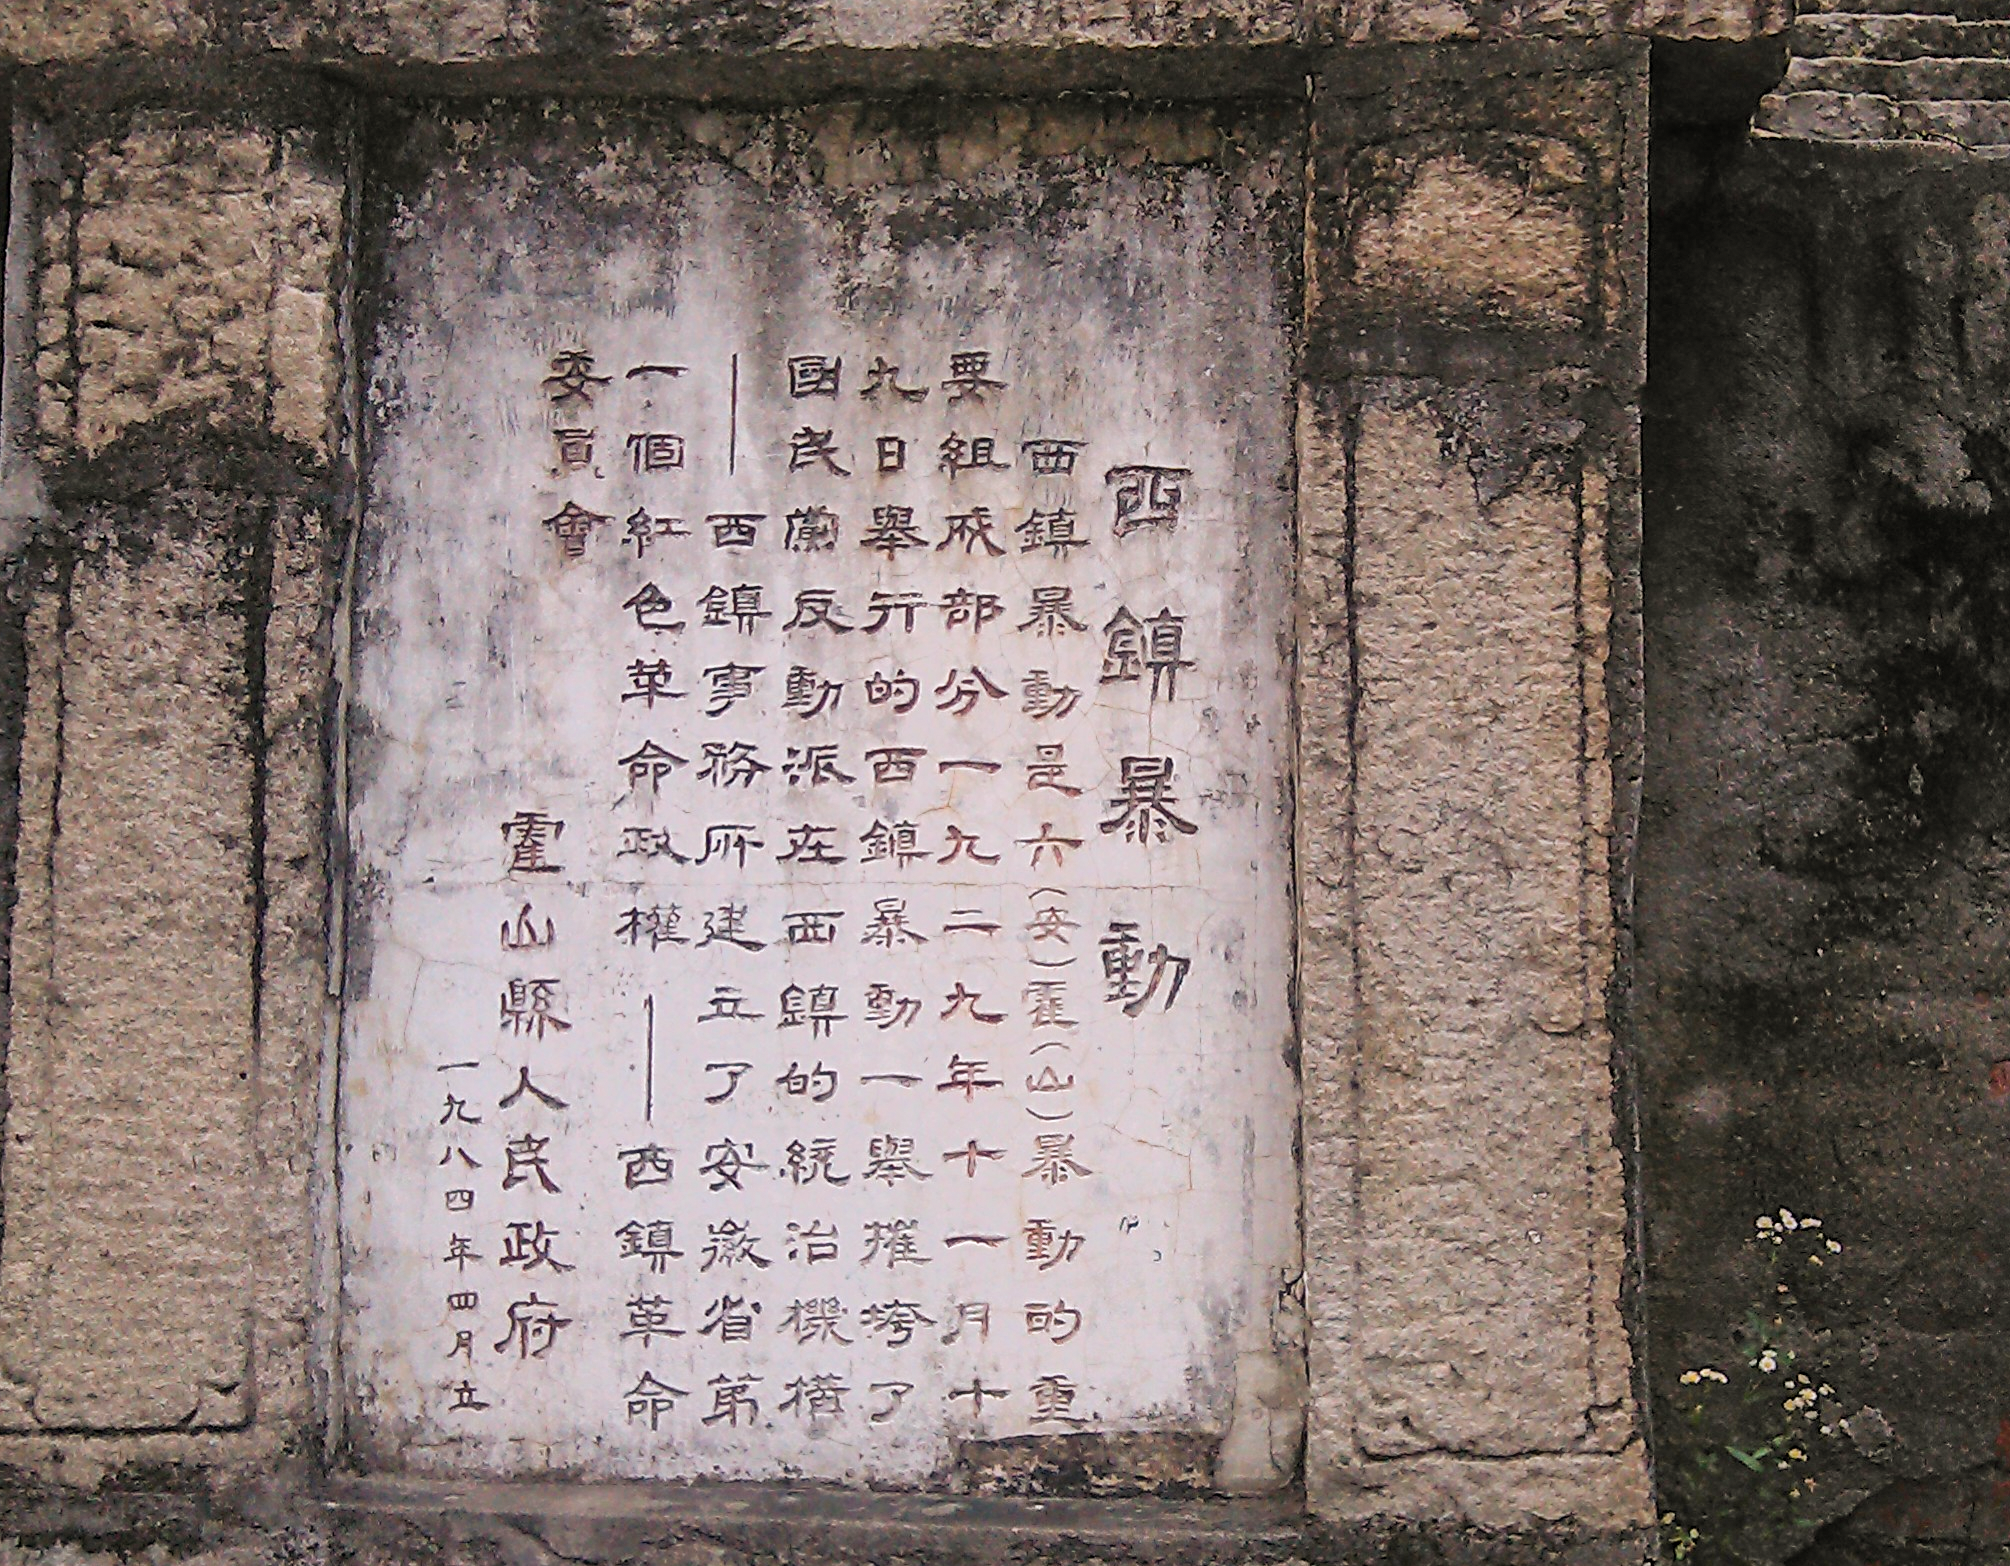 西鎮暴動
西鎮暴動是六(安)霍(山)暴動的重
要組成部分一九二九年十一月十
九日舉行的西鎮暴動一舉摧垮了
國民黨反動派在西鎮的統治機構
——西鎮事務所建立了安徽省第
一個紅色革命政權——西鎮革命
委員會
霍山縣人民政府
一九八四年四月立